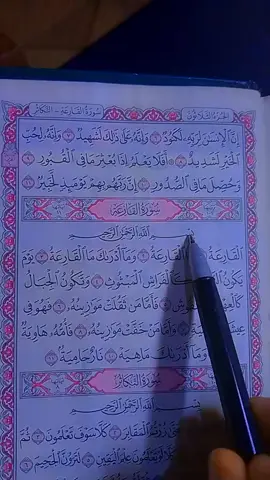 الجزء الثلاثون سورة القارعة - التكاثر
إِنَّ الْإِنسَانَ لِرَبِّهِ لَكَنُودٌ ٦ وَإِنَّهُ عَلَىٰ ذَٰلِكَ لَشَهِيدٌ ٧ وَإِنَّهُ لِحُبِّ
الْخَيْرِ لَشَدِيدٌ ٨ أَفَلَا يَعْلَمُ إِذَا بُعْثِرَ مَا فِي الْقُبُورِ ٩
وَحُصِّلَ مَا فِي الصُّدُورِ ١٠ إِنَّ رَبَّهُم بِهِمْ يَوْمَئِذٍ لَّخَبِيرٌ ١١
سُورَةُ الْقَارِعَةِ
بِسْمِ اللَّهِ الرَّحْمَٰنِ الرَّحِيمِ
الْقَارِعَةُ ١ الْقَارِعَةُ ٢ وَمَا أَدْرَاكَ مَا الْقَارِعَةُ ٣ يَوْمَ
يَكُونُ كَالْفَرَاشِ الْمَبْثُوثِ ٤ وَتَكُونُ الْجِبَالُ
كَالْعِهْنِ ٥ فَأَمَّا مَن ثَقُلَتْ مَوَازِينُهُ ٦ فَهُوَ فِي
عِيشَةٍ ٧ وَأَمَّا مَنْ خَفَّتْ مَوَازِينُهُ ٨ فَأُمُّهُ هَاوِيَةٌ
٩ وَمَا أَدْرَاكَ مَا هِيَهْ ١٠ نَارٌ حَامِيَةٌ ١١
سُورَةُ التَّكَاثُرِ
بِسْمِ اللَّهِ الرَّحْمَٰنِ الرَّحِيمِ
زُرْتُمُ الْمَقَابِرَ ٢ كَلَّا سَوْفَ تَعْلَمُونَ ٣ ثُمَّ
تَعْلَمُونَ عِلْمَ الْيَقِينِ ٥ لَتَرَوُنَّ الْجَحِيمَ